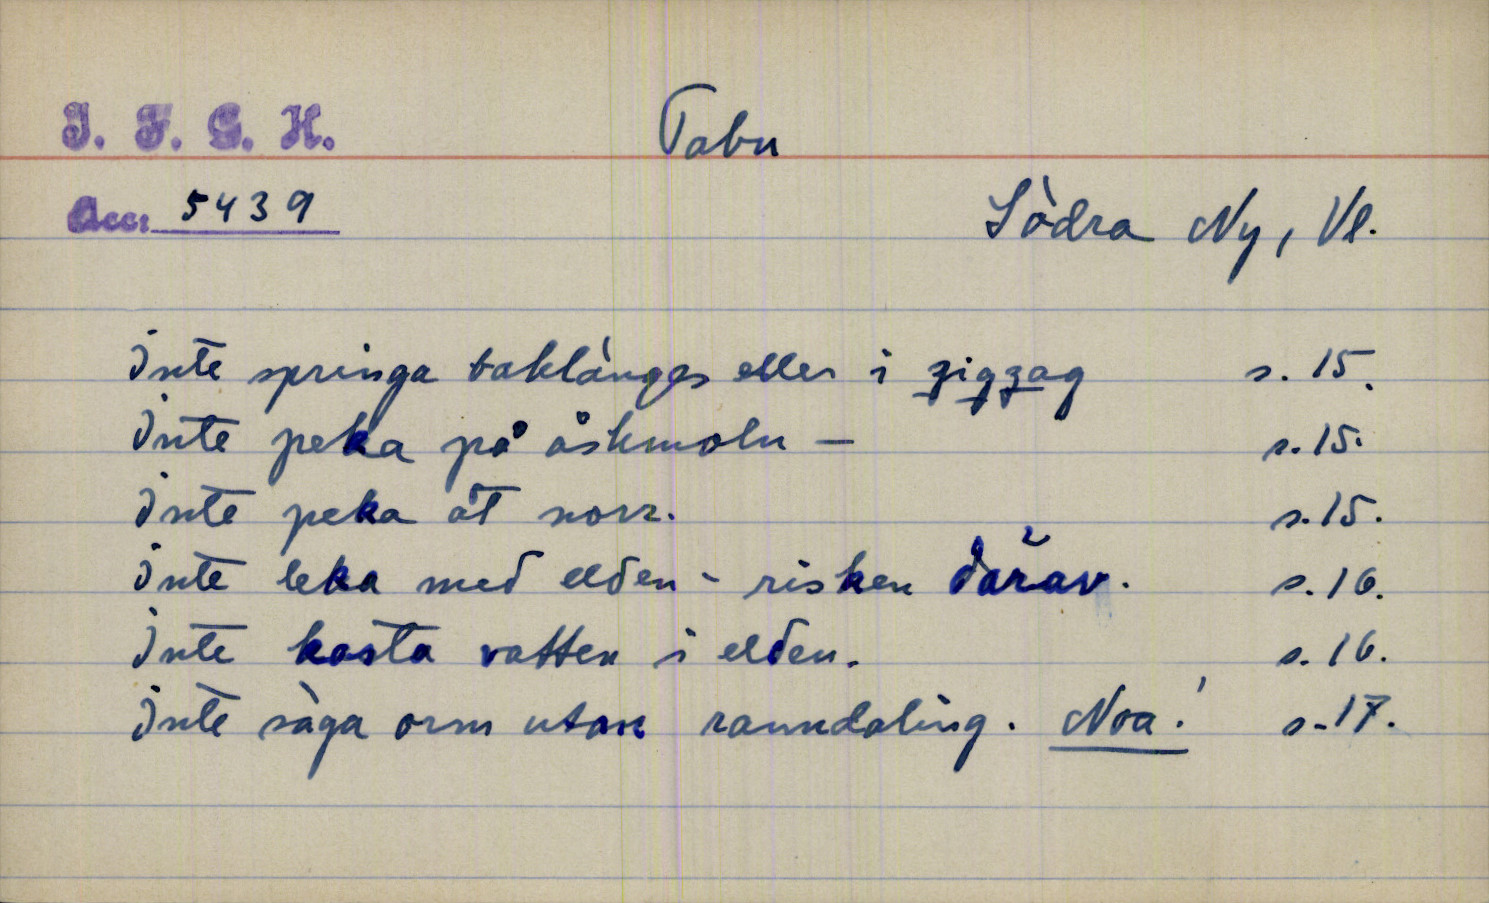 I. F. G. H.
Tabu
Acc: 5439
Södra Ny, Vl.
Inte springa baklänges eller i zigzag s. 15.
Inte peka på åskmoln – s. 15.
Inte peka åt norr. s. 15.
Inte leka med elden - risken därav. s. 16.
Inte kasta vatten i elden. s. 16.
Inte säga orm utan ranndaling. Noa! s. 17.